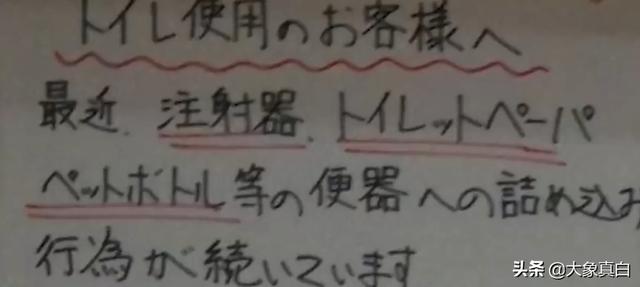 トイレ使用のお客様へ
最近、注射器、トイレットペーパ
ペットボトル等の便器への詰め込み
行為が続いています
头条 @大象真白